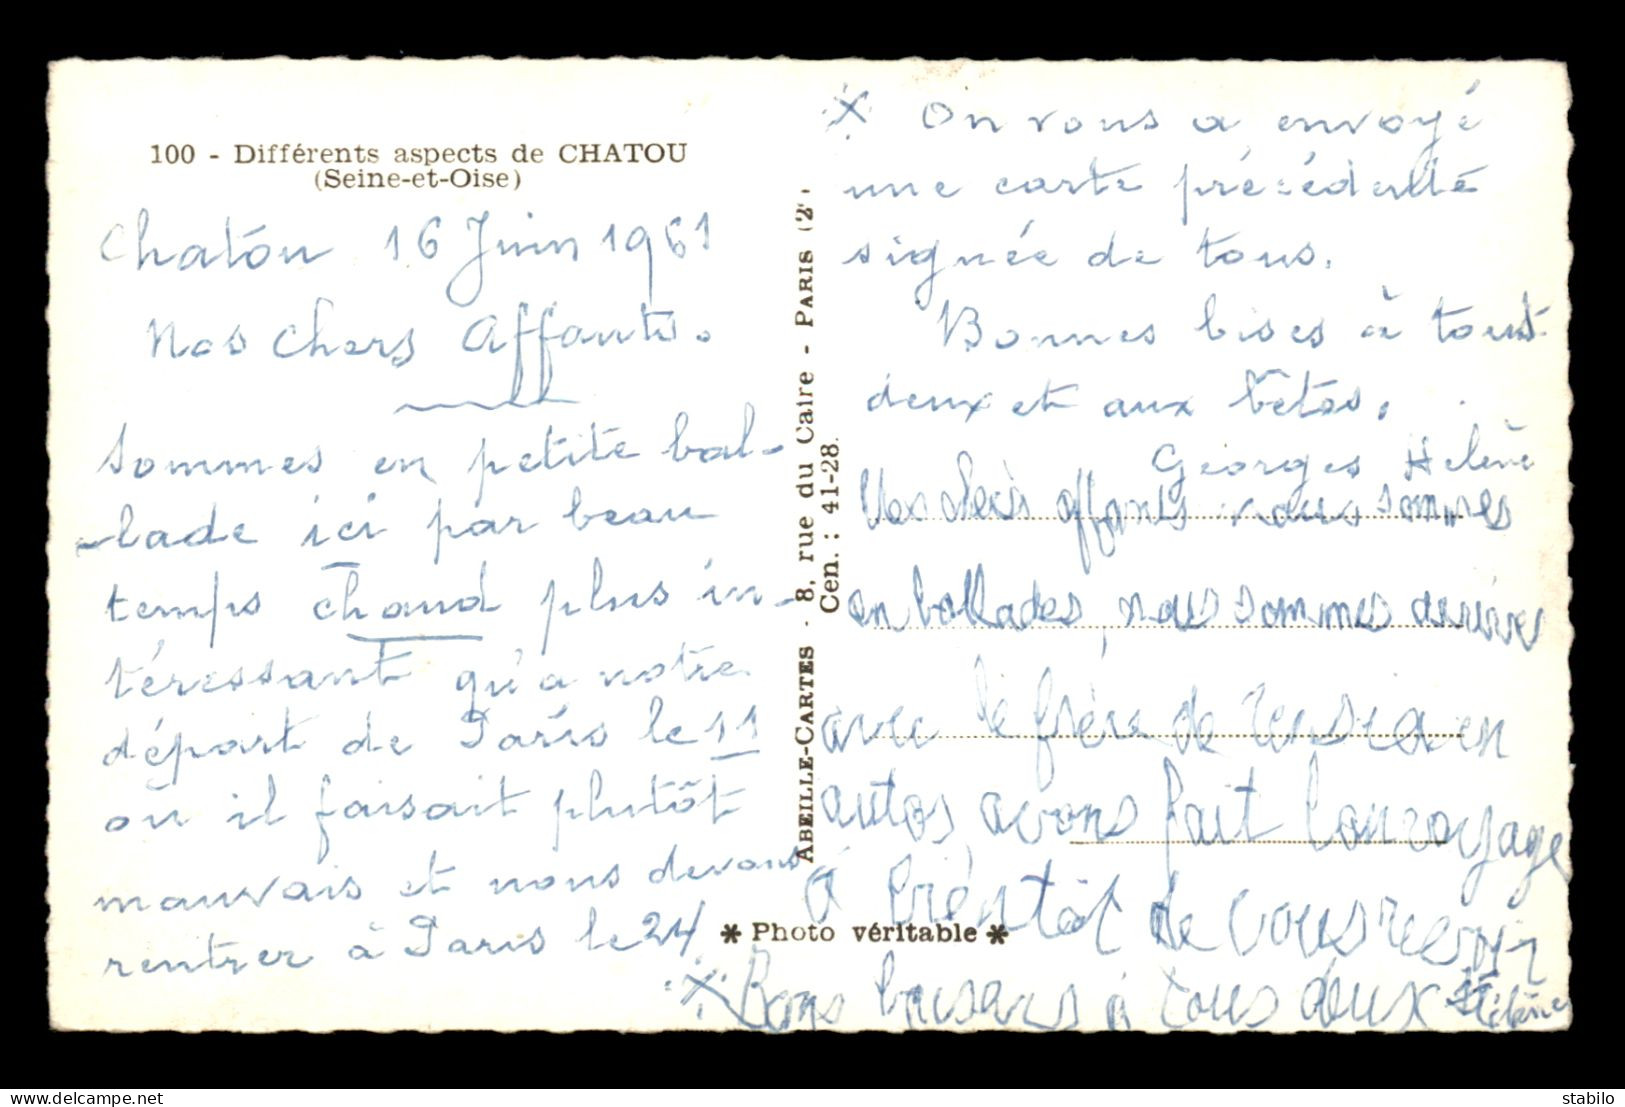 100 - Différents aspects de CHATOU
(Seine-et-Oise)
Chatou 16 Juin 1961
Nos Chers Affants.
Sommes en petite bal-
-lade ici par beau
temps chaud plus in-
téressant qu'a notre
départ de Paris le 11
où il faisait plutôt
mauvais et nous devons
rentrer à Paris le 24
X
ABEILLE-CARTES - 8, rue du Caire - PARIS (2
Cen. : 41-28.
* Photo véritable *
X On vous a envoyé
une carte précédente
signée de tous.
Bonnes bises à tous
deux et aux bêtes.
Georges Hélène
affants nous sommes
en ballades, nous sommes arrivés
avec le frère de en
autos, avons fait bon voyage
à bientôt de vous revoir
Bons baisers à tous deux Hélène
Stabilo